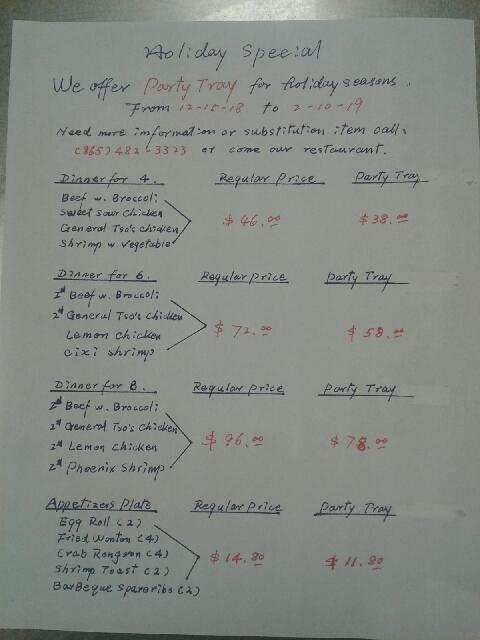 Holiday Special
We offer Party Tray for holiday seasons.
From 12-15-18 to 2-10-19
Need more information or substitution item call:
(865) 482-3323 or come our restaurant.
Dinner for 4. Regular Price Party Tray
Beef w. Broccoli
Sweet sour chicken
General Tso's chicken
Shrimp w Vegetable
$46.00 $38.00
Dinner for 6. Regular Price Party Tray
2nd Beef w. Broccoli
2nd General Tso's chicken
Lemon chicken
Cixi shrimp
$72.00 $58.00
Dinner for 8. Regular Price Party Tray
2nd Beef w. Broccoli
2nd General Tso's chicken
2nd Lemon chicken
2nd Phoenix shrimp
$96.00 $78.00
Appetizers Plate Regular Price Party Tray
Egg Roll (2)
Fried Wonton (4)
Crab Rongoon (4)
Shrimp Toast (2)
BarBeque Spareribs (2)
$14.80 $11.80